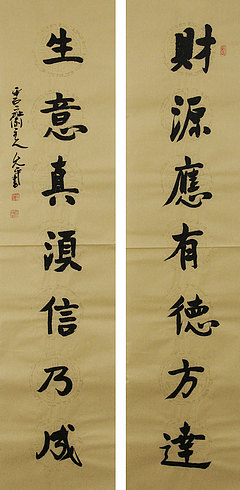 財源應有德方達
生意真須信乃成